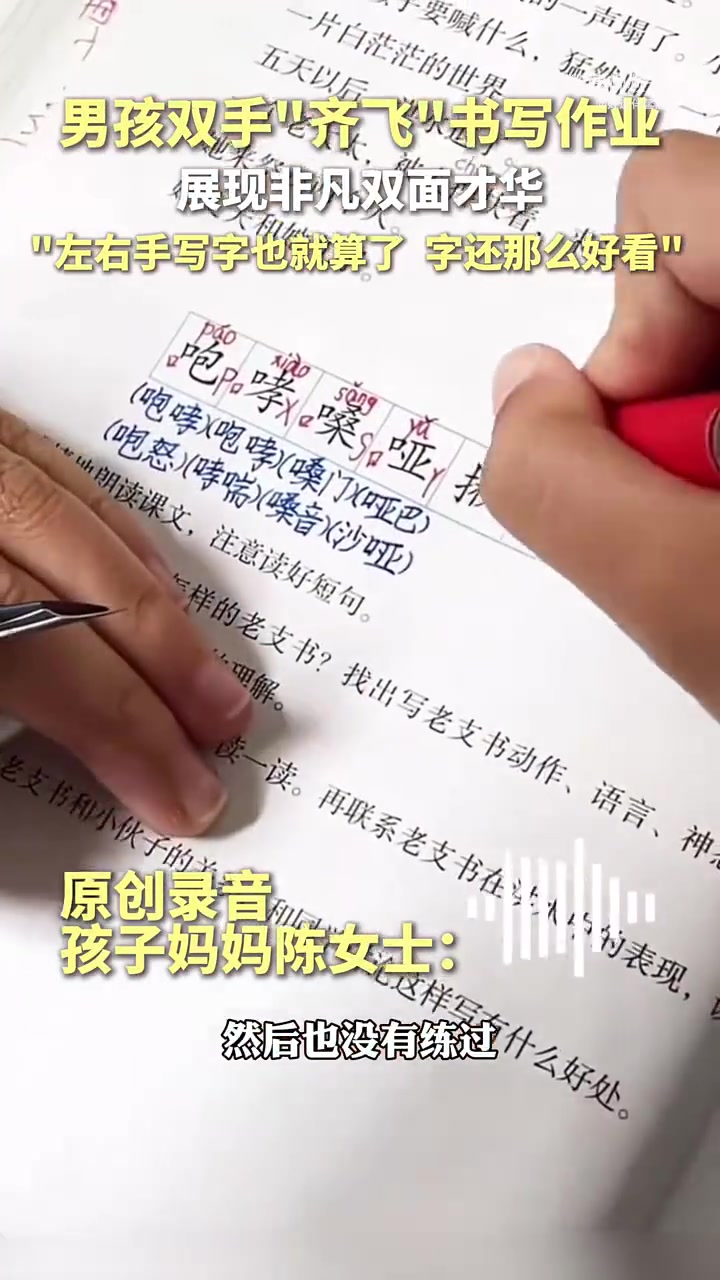 要喊什么，猛然间，一
的一声塌了。
一片白茫茫的世界
五天以后
男孩双手"齐飞"书写作业
展现非凡双面才华
"左右手写字也就算了 字还那么好看"
páo xiào sǎng yǎ
咆 哮 嗓 哑
(咆哮)(咆哮)(嗓门)(哑巴)
(咆怒)(哮喘)(嗓音)(沙哑)
地朗读课文，注意读好短句。
怎样的老支书？找出写老支书动作、语言、神态
的理解。
读一读。再联系老支书在洪水中的表现，
老支书和小伙子的关
论这样写有什么好处。
原创录音
孩子妈妈陈女士：
然后也没有练过